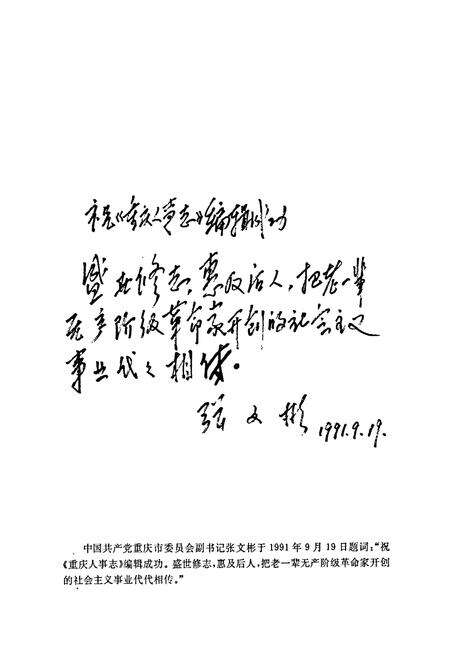 祝《重庆人事志》编辑成功
盛世修志，惠及后人，把老一辈
无产阶级革命家开创的社会主义
事业代代相传。
张文彬 1991.9.19.
中国共产党重庆市委员会副书记张文彬于1991年9月19日题词：“祝
《重庆人事志》编辑成功。盛世修志，惠及后人，把老一辈无产阶级革命家开创
的社会主义事业代代相传。”